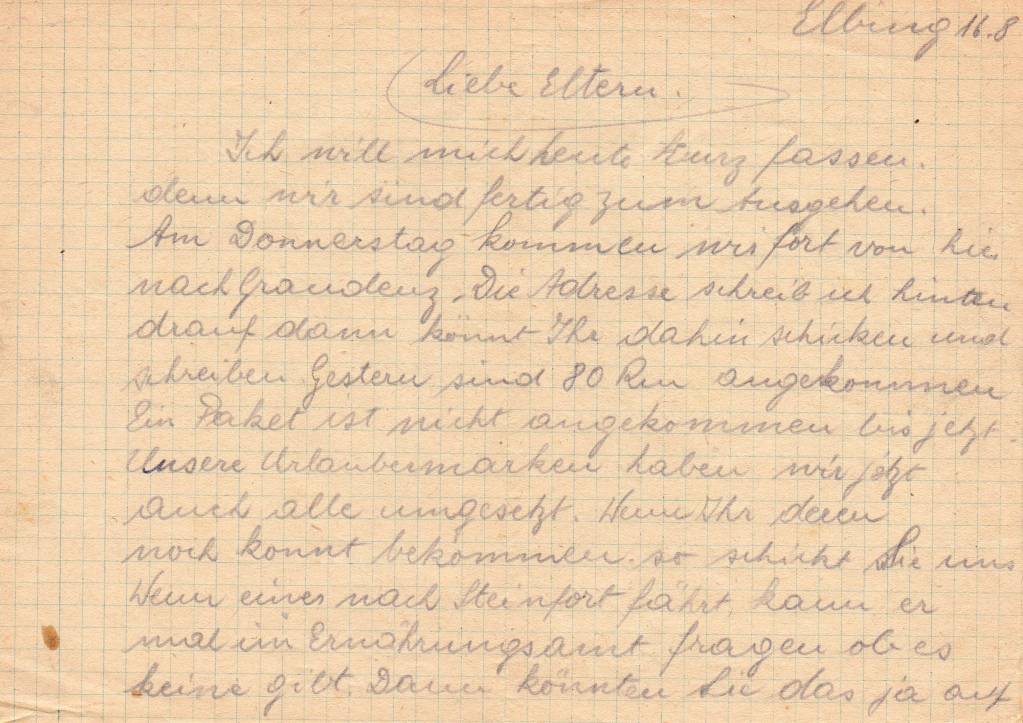 Elbing 16.8
Liebe Eltern.
Ich will mich heute kurz fassen.
denn wir sind fertig zum Ausgehen.
Am Donnerstag kommen wir fort von hier
nach Graudenz. Die Adresse schreib ich hinten
drauf dann könnt Ihr dahin schicken und
schreiben. Gestern sind 80 Rm angekommen
Ein Paket ist nicht angekommen bis jetzt.
Unsere Urlaubermarken haben wir jetzt
auch alle umgesetzt. Wenn Ihr deren
noch konnt bekommen. so schickt Sie uns
Wenn eines nach Steinfort fährt, kann er
mal im Ernährungsamt fragen ob es
keine gibt. Dann könnten Sie das ja auf